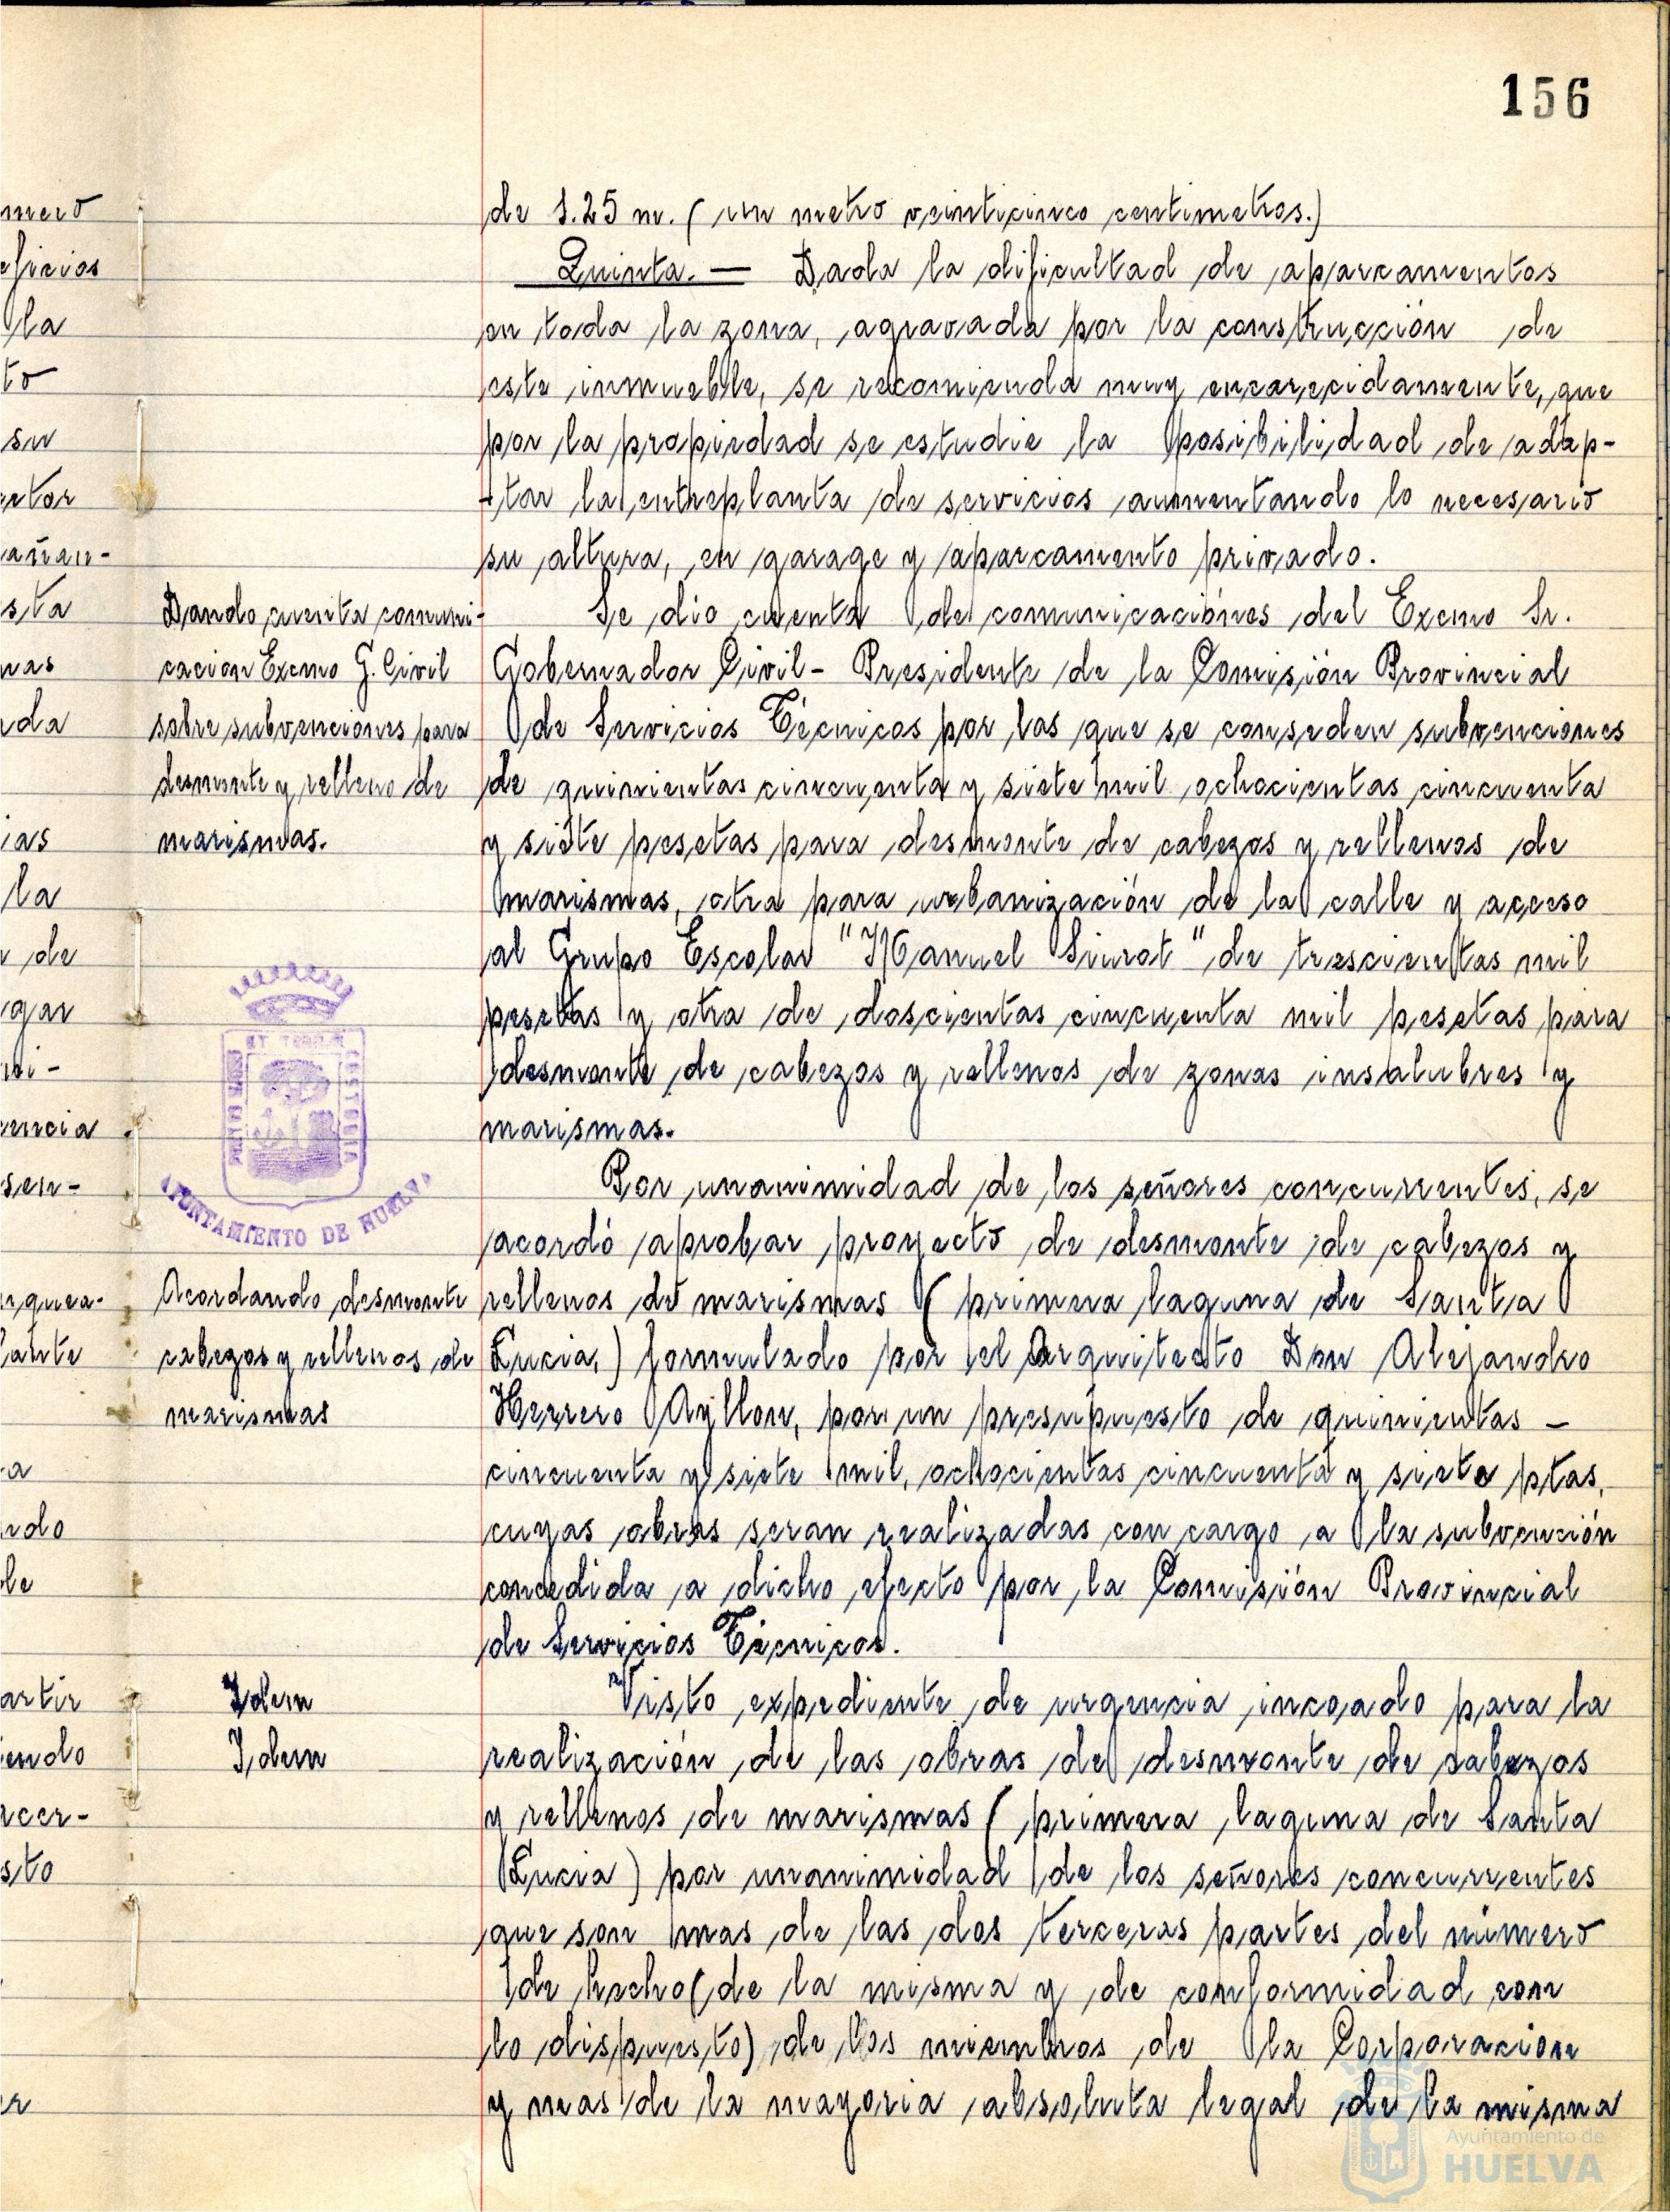 156
de 1.25 m. (un metro veinticinco centimetros.)
Quinta. — Dada la dificultad de aparcamentos
en toda la zona, agravada por la construcción de
este inmueble, se recomienda muy encarecidamente, que
por la propiedad se estudie la posibilidad de adap-
tar la entreplanta de servicios aumentando lo necesario
su altura, en garage y aparcamento privado.
Dando cuenta comuni-
cacion Excmo G. Civil
sobre subvenciones para
desmonte y relleno de
marismas.
Se dio cuenta de comunicaciones del Excmo Sr.
Gobernador Civil - Presidente de la Comisión Provincial
de Servicios Técnicos por las que se conseden subvenciones
de quinientas cincuenta y siete mil ochocientas cincuenta
y siete pesetas para desmonte de cabezos y rellenos de
marismas, otra para urbanización de la calle y acceso
al Grupo Escolar "Manuel Siurot" de trescientas mil
pesetas y otra de doscientas cincuenta mil pesetas para
desmonte de cabezos y rellenos de zonas insalubres y
marismas.
AYUNTAMIENTO DE HUELVA
Acordando desmonte
cabezos y rellenos de
marismas
Por unanimidad de los señores concurrentes, se
acordó aprobar proyecto de desmonte de cabezos y
rellenos de marismas (primera laguna de Santa
Lucia,) formulado por el Arquitecto Don Alejandro
Herrero Ayllon, por un presupuesto de quinientas -
cincuenta y siete mil, ochocientas cincuenta y siete ptas,
cuyas obras seran realizadas con cargo a la subvención
concedida a dicho efecto por la Comisión Provincial
de Servicios Técnicos.
Idem
Idem
Visto expediente de urgencia incoado para la
realización de las obras de desmonte de cabezos
y rellenos de marismas (primera laguna de Santa
Lucia) por unanimidad de los señores concurrentes
que son mas de las dos terceras partes del número
de hecho (de la misma y de conformidad con
lo dispuesto) de los miembros de la Corporacion
y mas de la mayoria absoluta legal de la misma
mero
eficios
la
to
su
ctor
añan-
sta
nas
da
ias
la
de
gar
ni-
encia
sen-
rquea-
lante
a
ndo
le
artir
endo
rcer-
sto
r
Ayuntamiento de
HUELVA